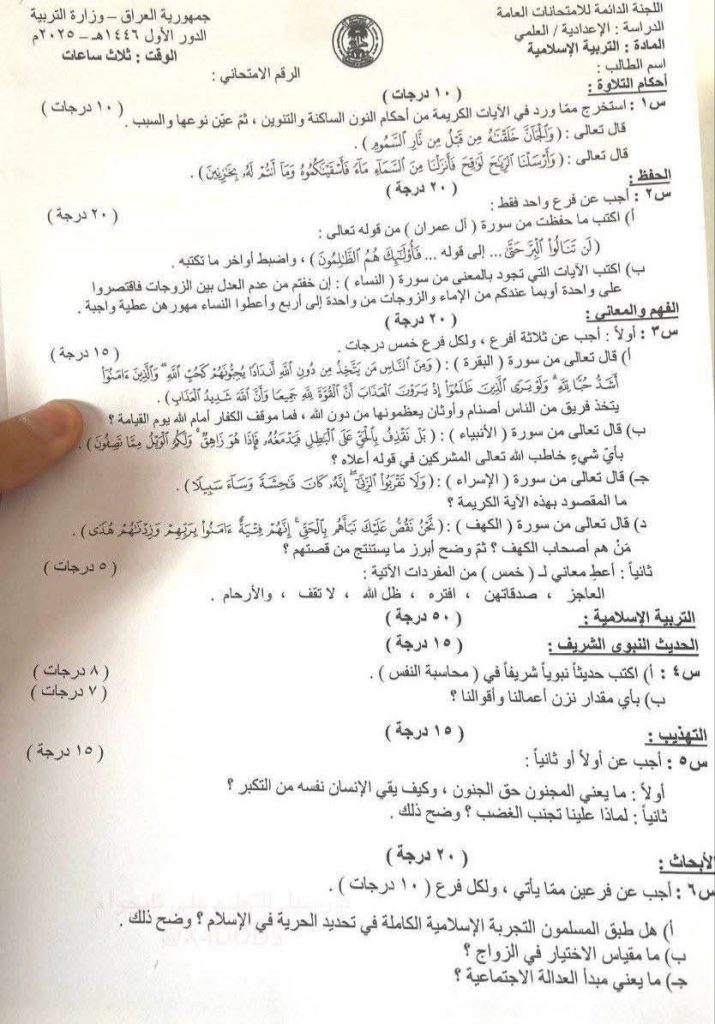 اللجنة الدائمة للامتحانات العامة
الدراسة : الإعدادية / العلمي
المادة : التربية الإسلامية
اسم الطالب :
جمهورية العراق – وزارة التربية
الدور الأول ١٤٤٦هـ - ٢٠٢٥م
الوقت : ثلاث ساعات
الرقم الامتحاني :
أحكام التلاوة : ( ١٠ درجات )
س١ : استخرج ممّا ورد في الآيات الكريمة من أحكام النون الساكنة والتنوين ، ثمّ عيّن نوعها والسبب . ( ١٠ درجات )
قال تعالى : ( وَالْجَانَّ خَلَقْنَاهُ مِن قَبْلُ مِن نَّارِ السَّمُومِ ) .
قال تعالى : ( وَأَرْسَلْنَا الرِّيَاحَ لَوَاقِحَ فَأَنزَلْنَا مِنَ السَّمَاءِ مَاءً فَأَسْقَيْنَاكُمُوهُ وَمَا أَنتُمْ لَهُ بِخَازِنِينَ ) .
الحفظ : ( ٢٠ درجة )
س٢ : أجب عن فرع واحد فقط : ( ٢٠ درجة )
أ) اكتب ما حفظت من سورة ( آل عمران ) من قوله تعالى :
( لَن تَنَالُوا الْبِرَّ حَتَّىٰ ... إلى قوله ... فَأُولَٰئِكَ هُمُ الظَّالِمُونَ ) ، واضبط أواخر ما تكتبه .
ب) اكتب الآيات التي تجود بالمعنى من سورة ( النساء ) : إن خفتم من عدم العدل بين الزوجات فاقتصروا
على واحدة أوبما عندكم من الإماء والزوجات من واحدة إلى أربع وأعطوا النساء مهورهن عطية واجبة .
الفهم والمعاني : ( ٢٠ درجة )
س٣ : أولاً : أجب عن ثلاثة أفرع ، ولكل فرع خمس درجات . ( ١٥ درجة )
أ) قال تعالى من سورة ( البقرة ) : ( وَمِنَ النَّاسِ مَن يَتَّخِذُ مِن دُونِ اللَّهِ أَندَادًا يُحِبُّونَهُمْ كَحُبِّ اللَّهِ ۖ وَالَّذِينَ ءَامَنُوا
أَشَدُّ حُبًّا لِّلَّهِ ۗ وَلَوْ يَرَى الَّذِينَ ظَلَمُوا إِذْ يَرَوْنَ الْعَذَابَ أَنَّ الْقُوَّةَ لِلَّهِ جَمِيعًا وَأَنَّ اللَّهَ شَدِيدُ الْعَذَابِ ) .
يتخذ فريق من الناس أصنام وأوثان يعظمونها من دون الله ، فما موقف الكفار أمام الله يوم القيامة ؟
ب) قال تعالى من سورة ( الأنبياء ) : ( بَلْ نَقْذِفُ بِالْحَقِّ عَلَى الْبَاطِلِ فَيَدْمَغُهُ فَإِذَا هُوَ زَاهِقٌ ۚ وَلَكُمُ الْوَيْلُ مِمَّا تَصِفُونَ ) .
بأيّ شيءٍ خاطب الله تعالى المشركين في قوله أعلاه ؟
جـ) قال تعالى من سورة ( الإسراء ) : ( وَلَا تَقْرَبُوا الزِّنَىٰ ۖ إِنَّهُ كَانَ فَاحِشَةً وَسَاءَ سَبِيلًا ) .
ما المقصود بهذه الآية الكريمة ؟
د) قال تعالى من سورة ( الكهف ) : ( نَّحْنُ نَقُصُّ عَلَيْكَ نَبَأَهُم بِالْحَقِّ ۚ إِنَّهُمْ فِتْيَةٌ ءَامَنُوا بِرَبِّهِمْ وَزِدْنَاهُمْ هُدًى ) .
مَنْ هم أصحاب الكهف ؟ ثمّ وضح أبرز ما يستنتج من قصتهم ؟
ثانياً : أعطِ معاني لـ ( خمس ) من المفردات الآتية : ( ٥ درجات )
العاجز ، صدقاتهن ، افتره ، ظل الله ، لا تقف ، والأرحام .
التربية الإسلامية : ( ٥٠ درجة )
الحديث النبوي الشريف : ( ١٥ درجة )
س٤ : أ) اكتب حديثاً نبوياً شريفاً في ( محاسبة النفس ) . ( ٨ درجات )
ب) بأي مقدار نزن أعمالنا وأقوالنا ؟ ( ٧ درجات )
التهذيب : ( ١٥ درجة )
س٥ : أجب عن أولاً أو ثانياً : ( ١٥ درجة )
أولاً : ما يعني المجنون حق الجنون ، وكيف يقي الإنسان نفسه من التكبر ؟
ثانياً : لماذا علينا تجنب الغضب ؟ وضح ذلك .
الأبحاث : ( ٢٠ درجة )
س٦ : أجب عن فرعين ممّا يأتي ، ولكل فرع ( ١٠ درجات ) .
أ) هل طبق المسلمون التجربة الإسلامية الكاملة في تحديد الحرية في الإسلام ؟ وضح ذلك .
ب) ما مقياس الاختيار في الزواج ؟
جـ) ما يعني مبدأ العدالة الاجتماعية ؟